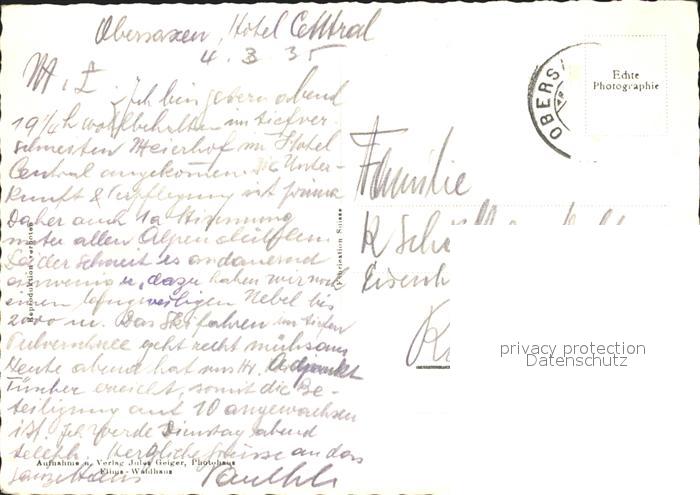 Obersaxen, Hotel Central
4. 3. 35
M. L.
Ich bin gestern abend
19¼ h wohlbehalten im tiefver-
schneiten Meierhof im Hotel
Central angekommen. Die Unter-
kunft & Verpflegung ist prima
Daher auch 1a Stimmung
unter allen
Leider schneit es andauernd
ein wenig u. dazu haben wir noch
einen Nebel bis
2000 m. Das Skifahren im tiefen
Pulverschnee geht recht mühsam
Heute abend hat uns H. Adjunkt
erreicht, somit die Be-
teiligung auf 10 angewachsen
ist. Ich werde Dienstag abend
teleph. Herzliche Grüsse an das
ganze Haus
Aufnahme u. Verlag Jules Geiger, Photohaus
Flims - Waldhaus
Reproduktion verboten
Fabrication Suisse
OBERS
Echte
Photographie
Familie
K Sch
Eisenh
privacy protection
Datenschutz